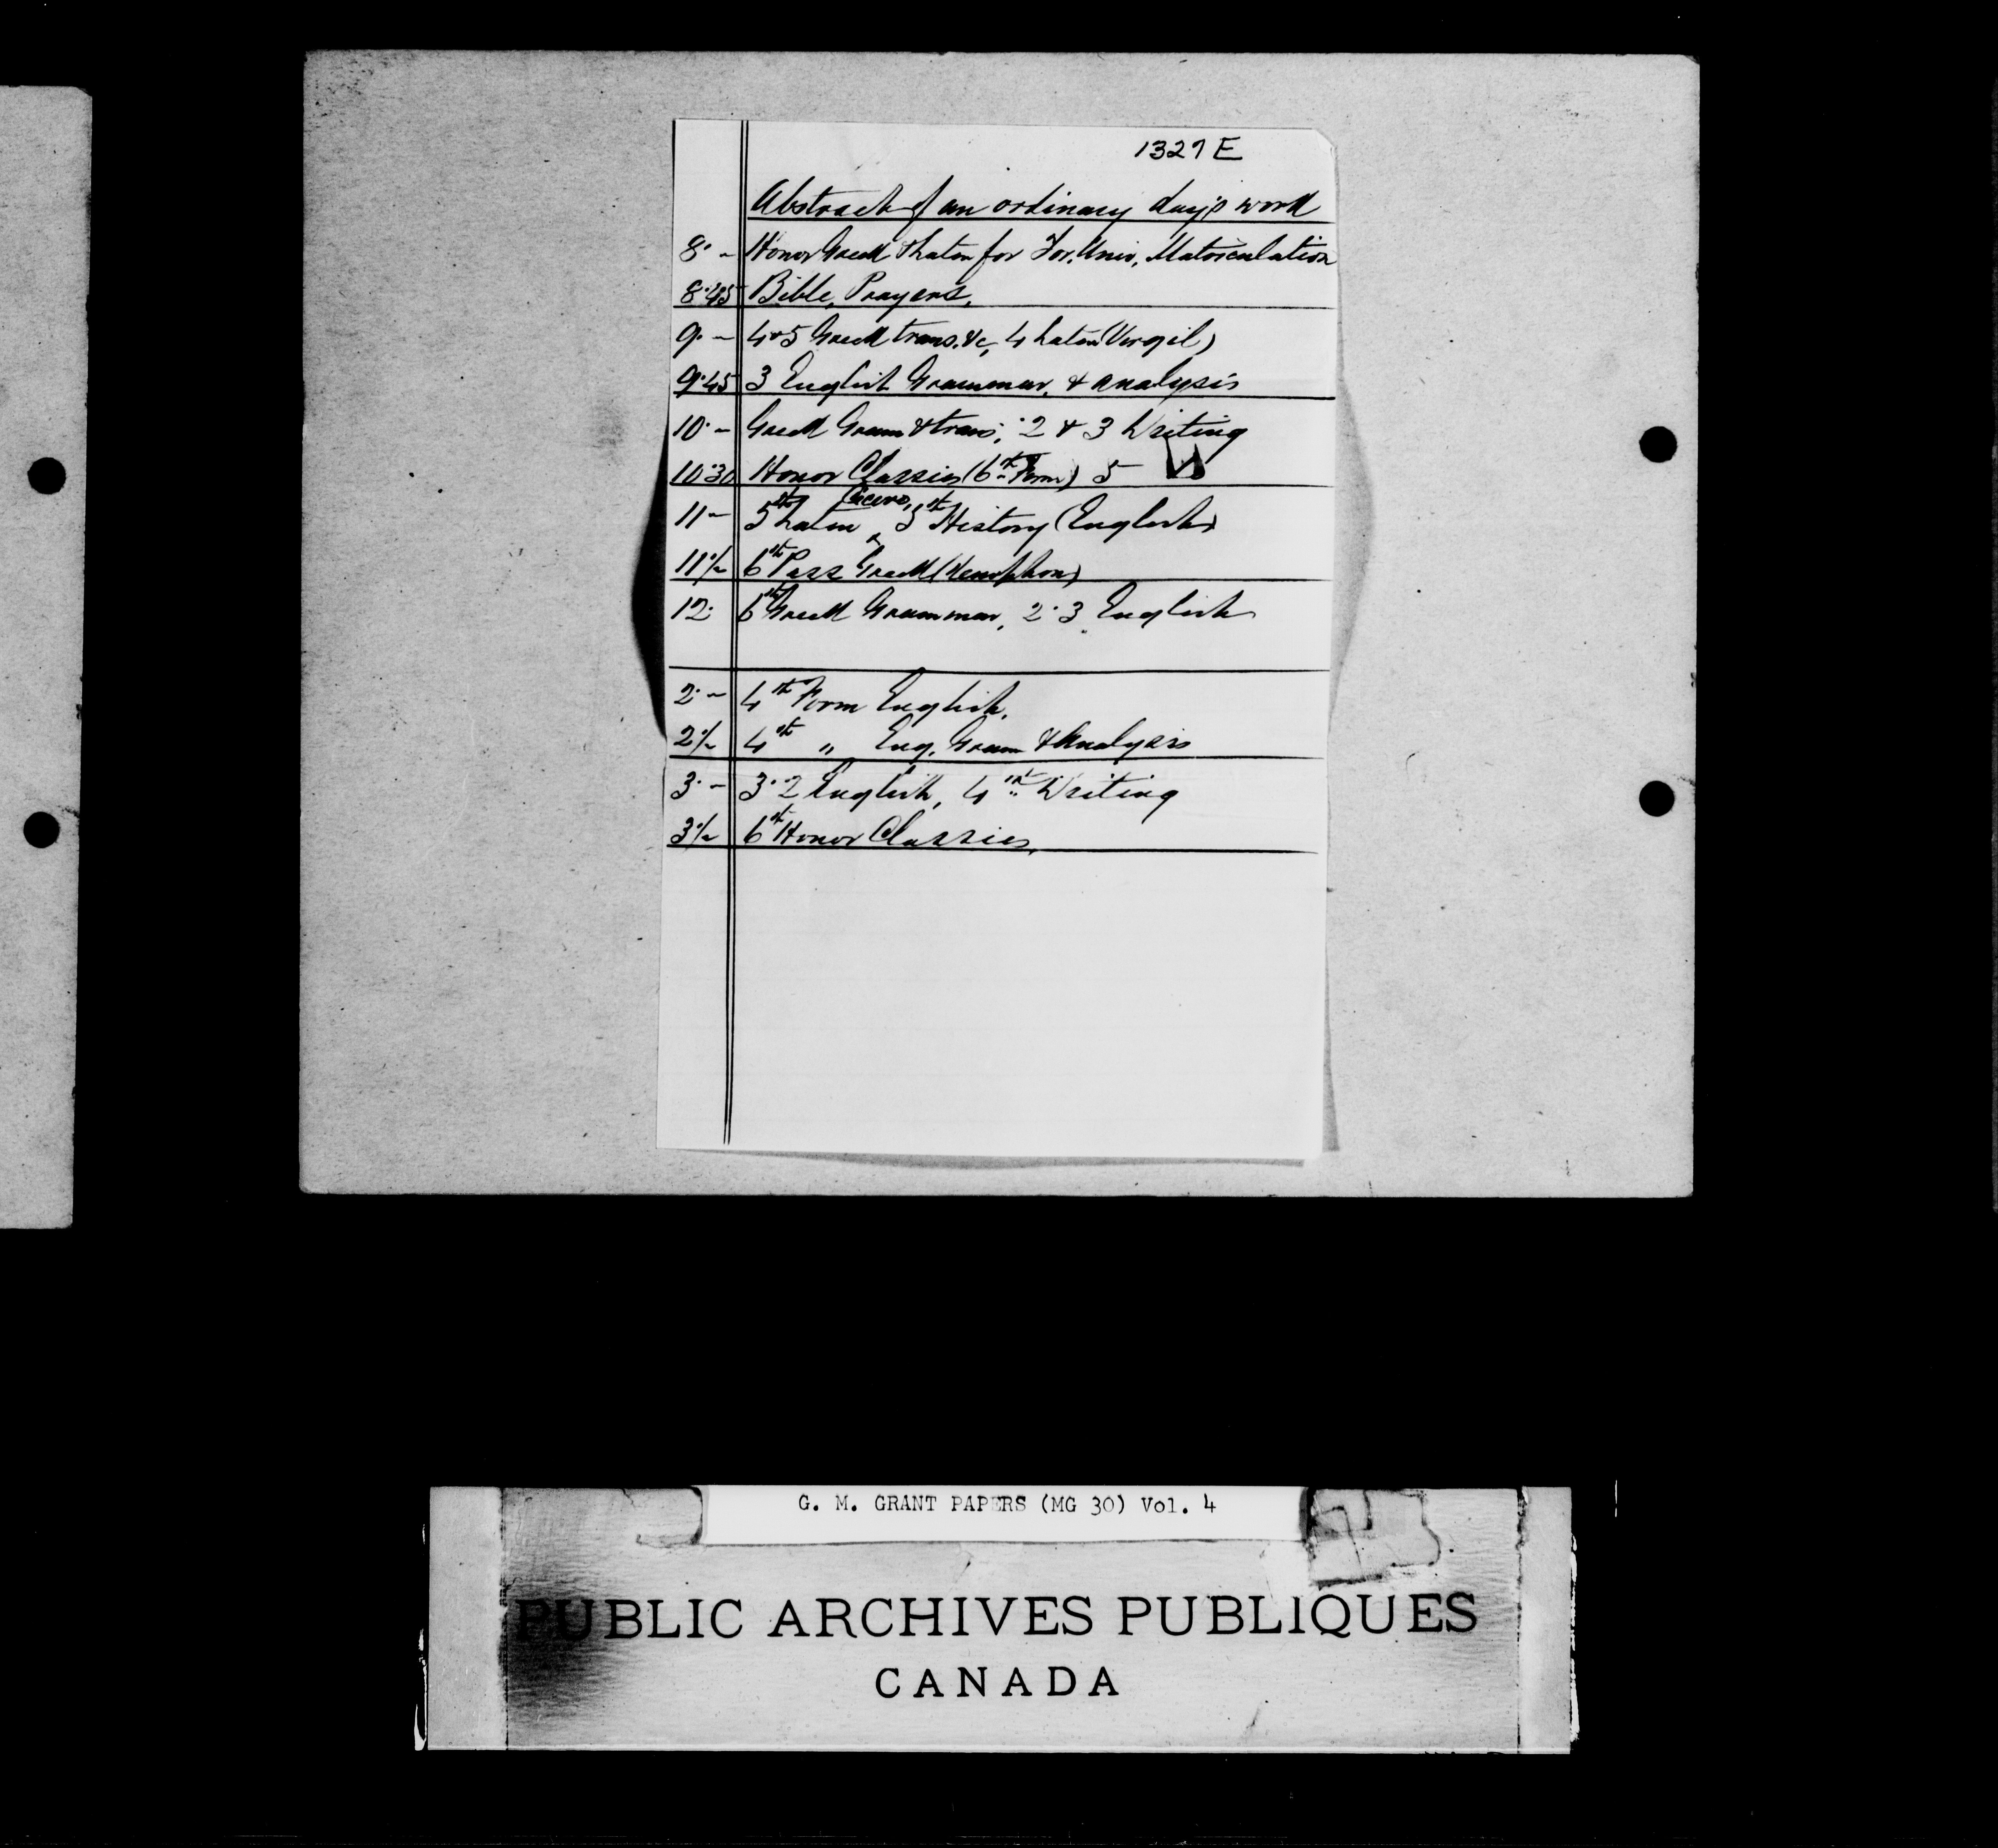 1327 E
Abstract of an ordinary day's work
8· - Honor Greek & Latin for Tor. Univ. Matriculation
8·45 Bible, Prayers.
9· - 4 & 5 Greek trans. &c, 4 Latin (Vergil)
9·45 3 English Grammar, & analysis
10· - Greek Gram & trans; 2 & 3 Writing
10·30 Honor Classics (6th Form) 5
11 - 5th Latin Cicero, 5th History (English)
11½ 6th Pass Greek (Xenophon)
12· 6th Greek Grammar, 2·3 English
2· - 4th Form English.
2½ 4th " Eng. Gram & Analysis
3· - 3·2 English, 4th Writing
3½ 6th Honor Classics.
G. M. GRANT PAPERS (MG 30) Vol. 4
PUBLIC ARCHIVES PUBLIQUES
CANADA